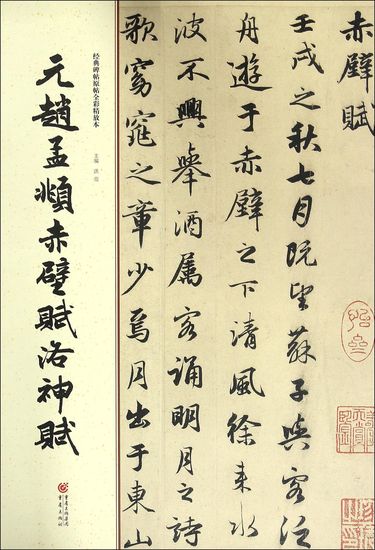 赤壁賦
壬戌之秋七月既望蘇子與客泛
舟遊于赤壁之下清風徐来水
波不興舉酒屬客誦明月之詩
歌窈窕之章少焉月出于東山
经典碑帖原帖全彩精放本
元趙孟頫赤壁賦洛神賦
主编
重庆出版集团
重庆出版社